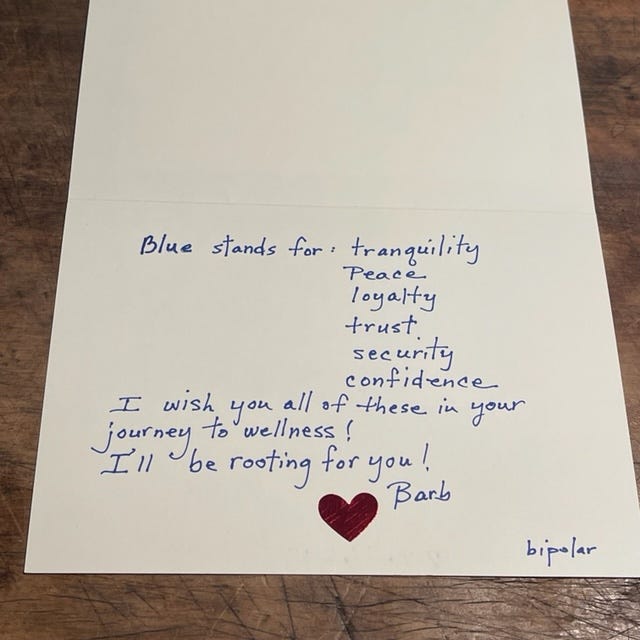 Blue stands for: tranquility
Peace
loyalty
trust
security
confidence
I wish you all of these in your
journey to wellness!
I'll be rooting for you!
Barb
bipolar